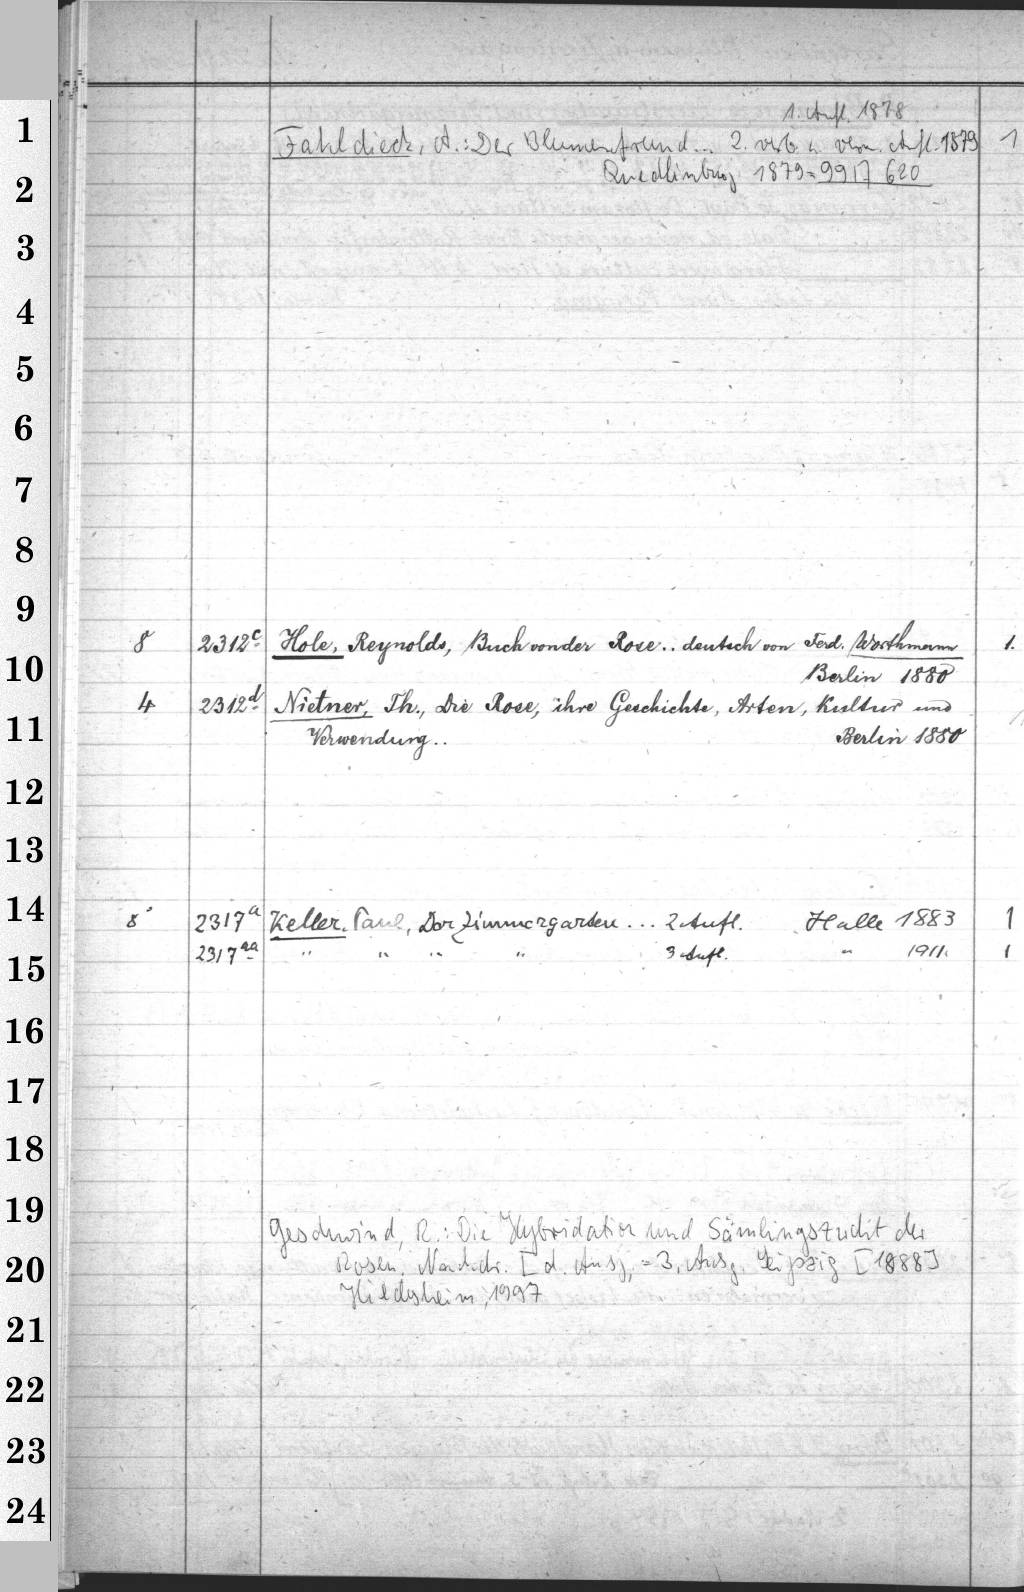 1. Aufl. 1878.
Fahldieck, A.: Der Blumenfreund... 2. verb. u. verm. Aufl. 1879 1
Quedlinburg 1879 = 9917 620
8 2312c Hole, Reynolds, Buch von der Rose.. deutsch von Ferd. Worthmann 1.
Berlin 1880
4 2312d Nietner, Th., Die Rose, ihre Geschichte, Arten, Kultur und
Verwendung.. Berlin 1880
8° 2317a Keller, Paul, Der Zimmergarten ... 2 Aufl. Halle 1883 1
2317aa " " " " 3 Aufl. " 1911. 1
Geschwind, R.: Die Hybridation und Sämlingszucht der
Rosen. Nachdr. [d. Ausg. = 3. Ausg. Leipzig [1888]
Hildesheim, 1997
1
2
3
4
5
6
7
8
9
10
11
12
13
14
15
16
17
18
19
20
21
22
23
24